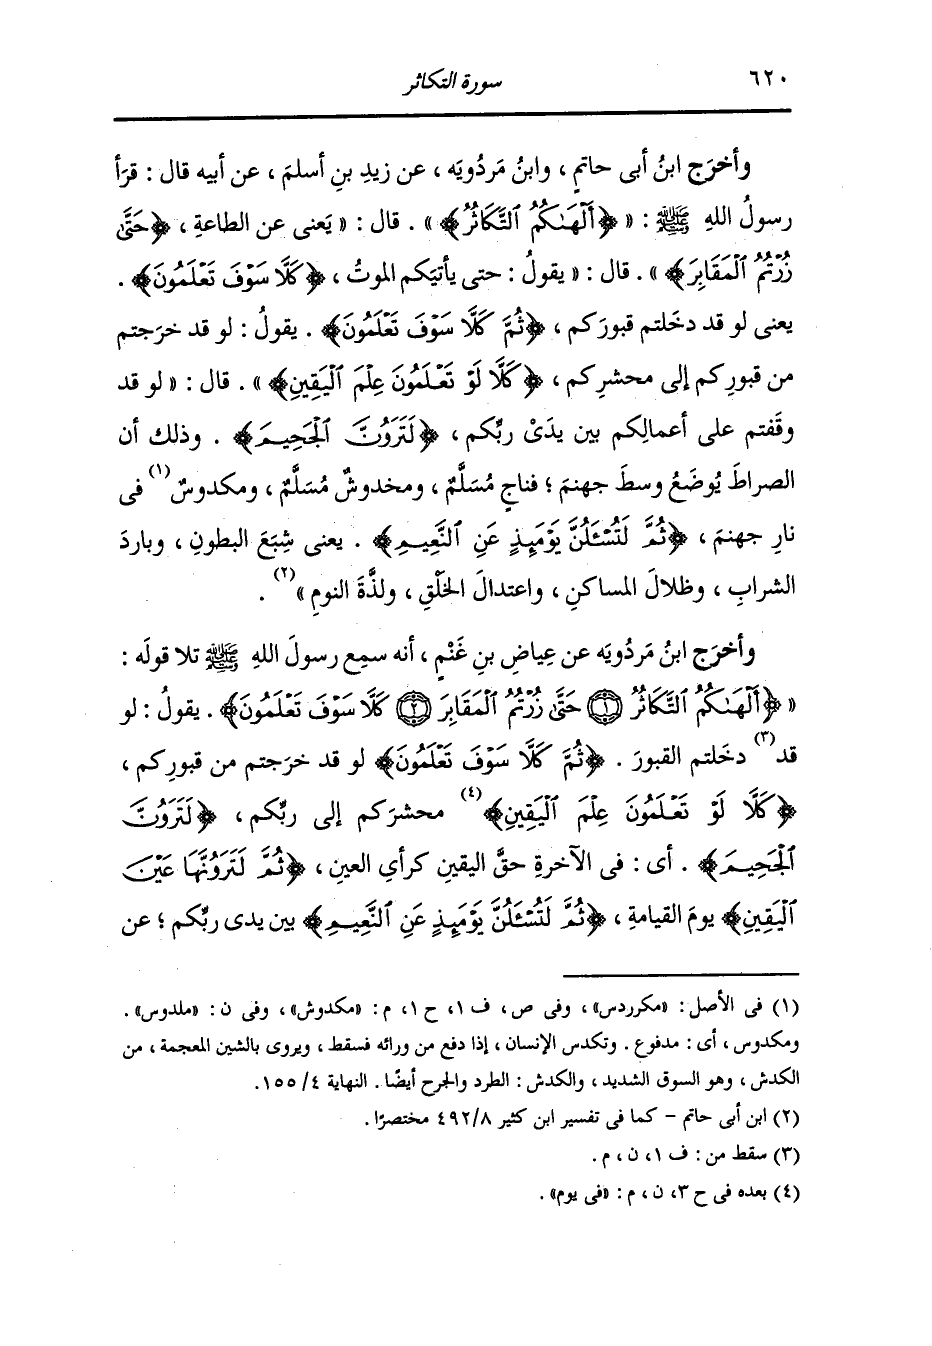 ٦٢٠
سورة التكاثر
وأخرَج ابنُ أبى حاتمٍ ، وابنُ مَردُويَه ، عن زيدِ بنِ أسلمَ ، عن أبيه قال : قرَأ
رسولُ اللهِ ﷺ : « ﴿أَلْهَىٰكُمُ ٱلتَّكَاثُرُ﴾ » . قال : « يَعنى عن الطاعةِ ، ﴿حَتَّىٰ
زُرْتُمُ ٱلْمَقَابِرَ﴾ » . قال : « يقولُ : حتى يأتيَكم الموتُ ، ﴿كَلَّا سَوْفَ تَعْلَمُونَ﴾ .
يعنى لو قد دخَلتم قبورَكم ، ﴿ثُمَّ كَلَّا سَوْفَ تَعْلَمُونَ﴾ . يقولُ : لو قد خرَجتم
من قبورِكم إلى محشرِكم ، ﴿كَلَّا لَوْ تَعْلَمُونَ عِلْمَ ٱلْيَقِينِ﴾ » . قال : « لو قد
وقَفتم على أعمالِكم بين يدَىْ ربِّكم ، ﴿لَتَرَوُنَّ ٱلْجَحِيمَ﴾ . وذلك أن
الصراطَ يُوضَعُ وسطَ جهنمَ ؛ فناجٍ مُسَلَّمٌ ، ومخدوشٌ مُسَلَّمٌ ، ومكدوسٌ (١) فى
نارِ جهنمَ ، ﴿ثُمَّ لَتُسْـَٔلُنَّ يَوْمَئِذٍ عَنِ ٱلنَّعِيمِ﴾ . يعنى شِبَعَ البطونِ ، وباردَ
الشرابِ ، وظلالَ المساكنِ ، واعتدالَ الخَلْقِ ، ولذَّةَ النومِ » (٢) .
وأخرَج ابنُ مَردُويَه عن عِياضِ بنِ غَنْمٍ ، أنه سمِع رسولَ اللهِ ﷺ تلا قولَه :
« ﴿أَلْهَىٰكُمُ ٱلتَّكَاثُرُ ۝١ حَتَّىٰ زُرْتُمُ ٱلْمَقَابِرَ ۝٢ كَلَّا سَوْفَ تَعْلَمُونَ﴾ . يقولُ : لو
قد (٣) دخَلتم القبورَ . ﴿ثُمَّ كَلَّا سَوْفَ تَعْلَمُونَ﴾ لو قد خرَجتم من قبورِكم ،
﴿كَلَّا لَوْ تَعْلَمُونَ عِلْمَ ٱلْيَقِينِ﴾ (٤) محشرَكم إلى ربِّكم ، ﴿لَتَرَوُنَّ
ٱلْجَحِيمَ﴾ . أى : فى الآخرةِ حقَّ اليقينِ كرأيِ العينِ ، ﴿ثُمَّ لَتَرَوُنَّهَا عَيْنَ
ٱلْيَقِينِ﴾ يومَ القيامةِ ، ﴿ثُمَّ لَتُسْـَٔلُنَّ يَوْمَئِذٍ عَنِ ٱلنَّعِيمِ﴾ بين يدى ربِّكم ؛ عن
(١) فى الأصل : «مكرردس» ، وفى ص ، ف ١، ح ١، م : «مكدوش» ، وفى ن : «ملدوس» .
ومكدوس ، أى : مدفوع . وتكدس الإنسان ، إذا دفع من ورائه فسقط ، ويروى بالشين المعجمة ، من
الكدش ، وهو السوق الشديد ، والكدش : الطرد والجرح أيضًا . النهاية ٤/ ١٥٥.
(٢) ابن أبى حاتم - كما فى تفسير ابن كثير ٨/ ٤٩٢ مختصرًا .
(٣) سقط من : ف ١، ن ، م .
(٤) بعده فى ح ٣، ن ، م : «فى يوم» .